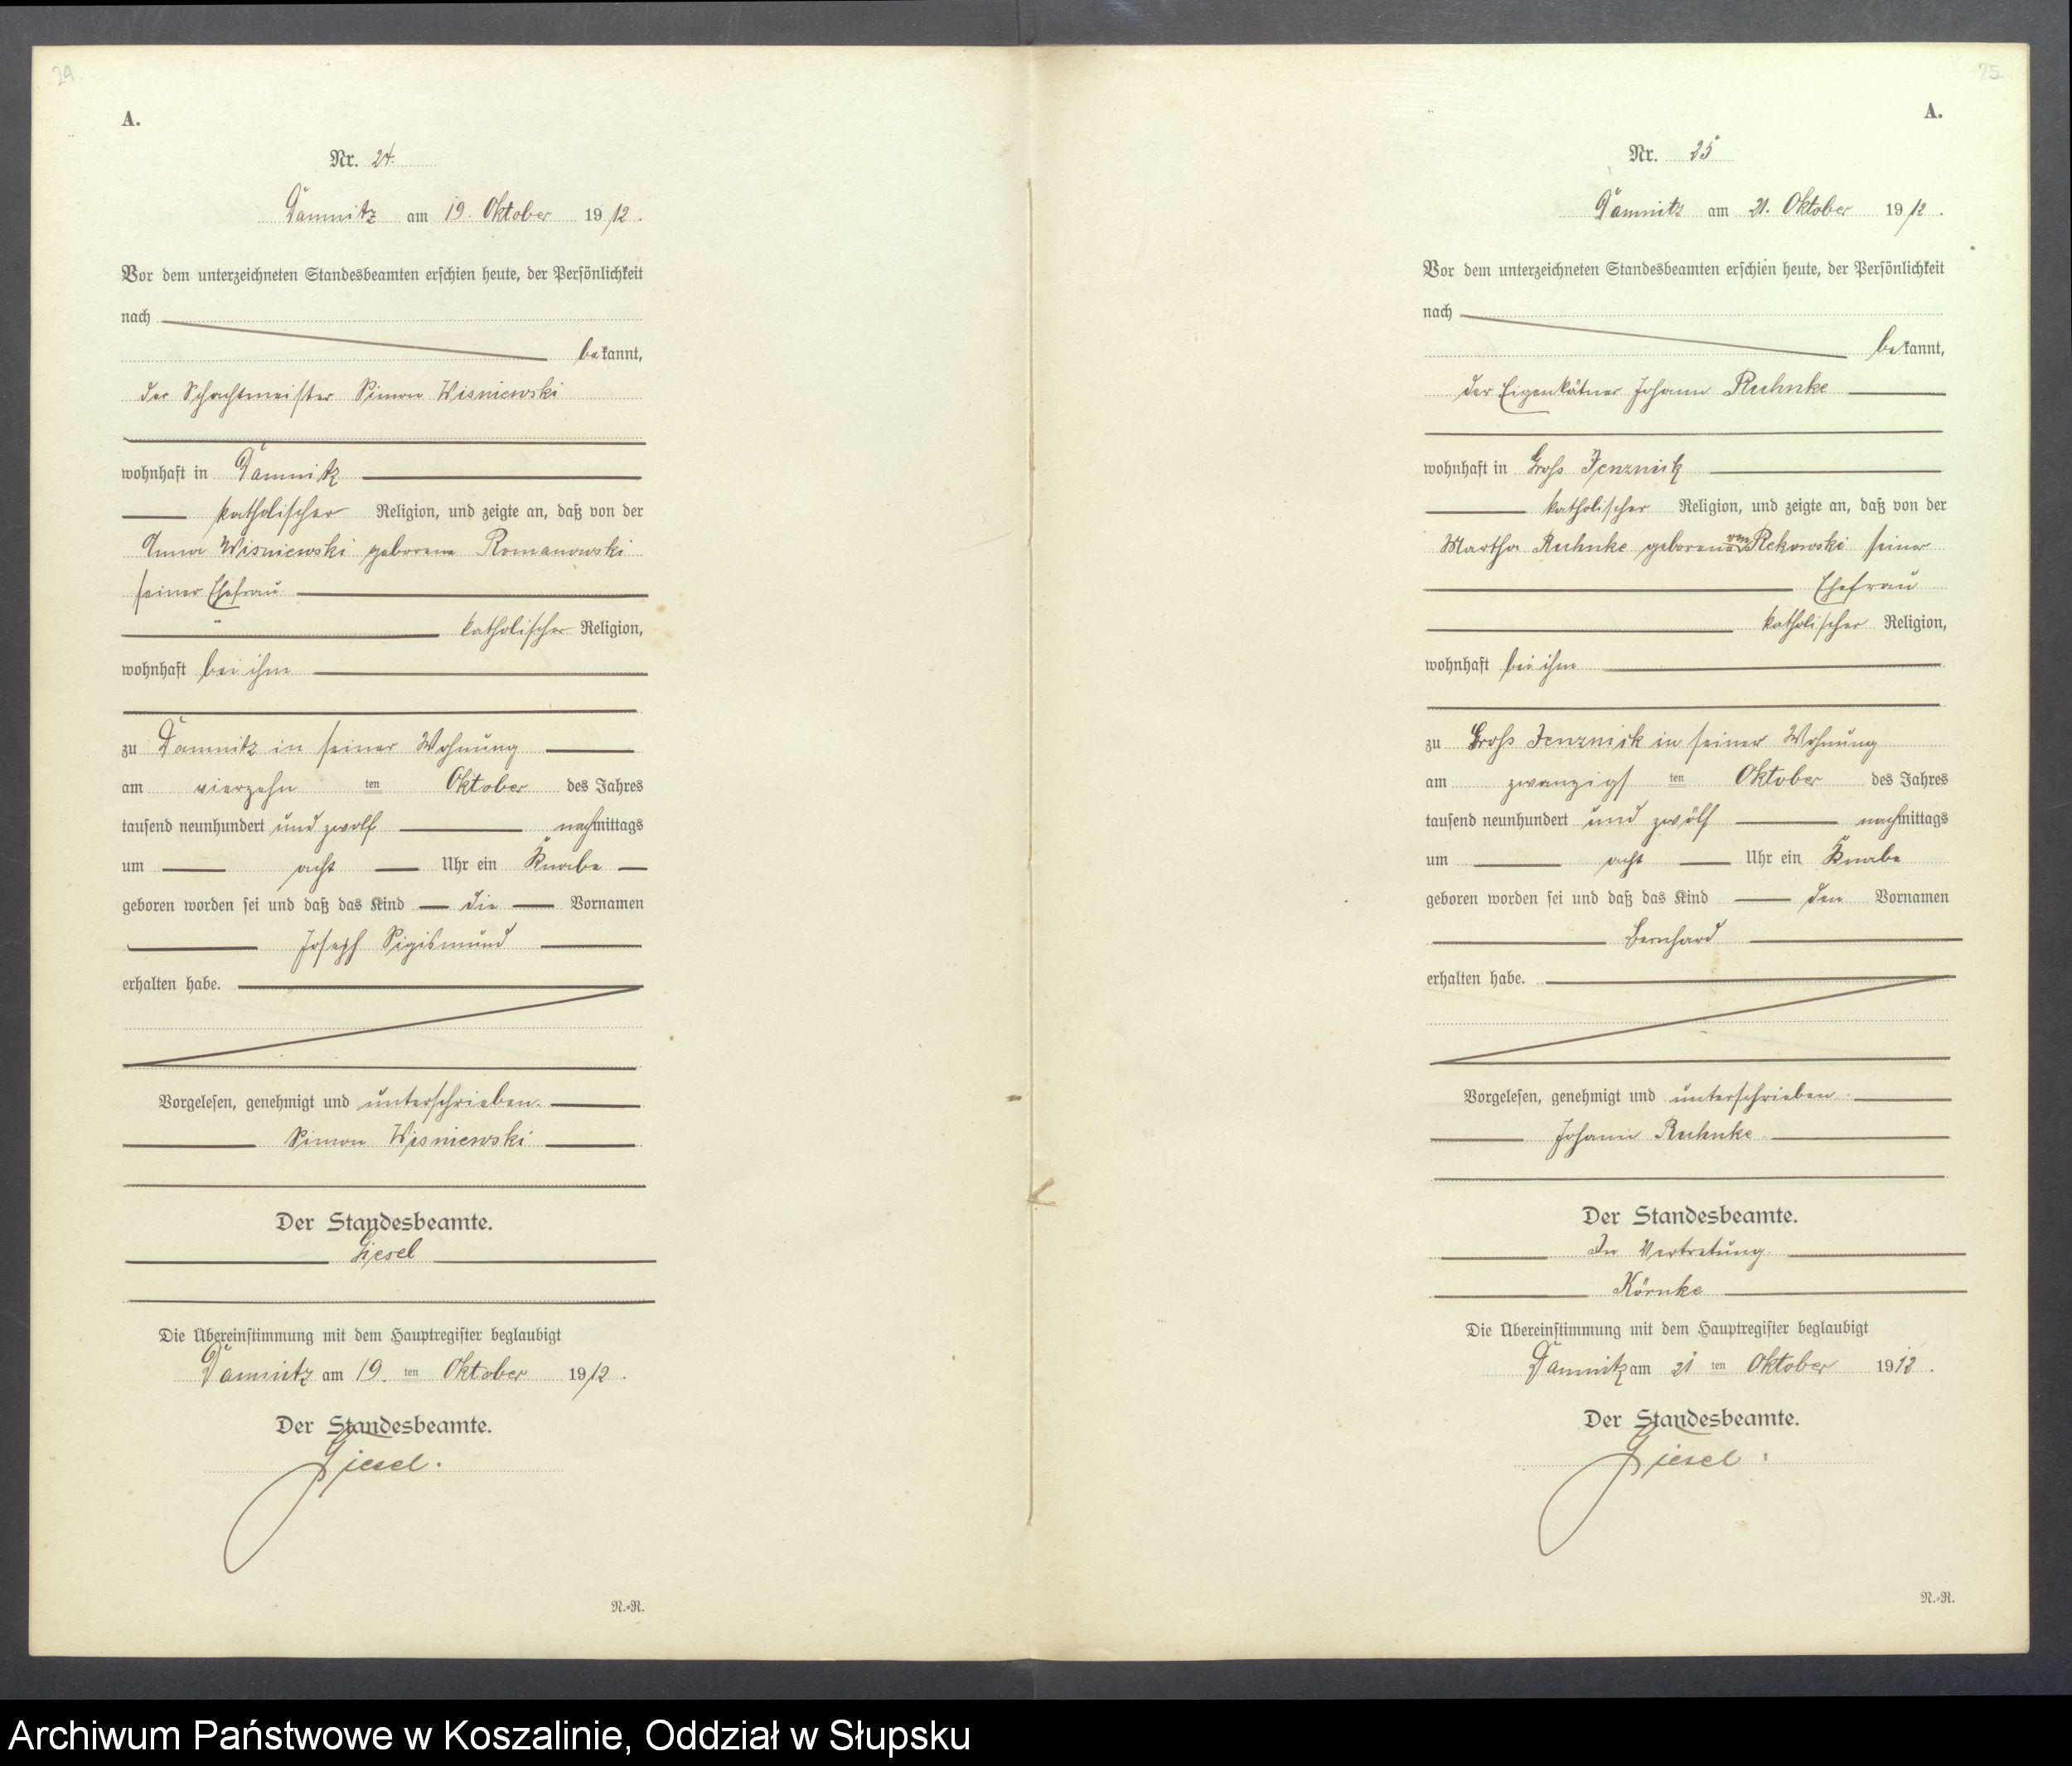 24.
A.
Nr. 24.
Damnitz am 19. Oktober 1912.
Vor dem unterzeichneten Standesbeamten erschien heute, der Persönlichkeit
nach
bekannt,
der Schachtmeister Simon Wisniewski
wohnhaft in Damnitz
katholischer Religion, und zeigte an, daß von der
Anna Wisniewski geborene Romanowski
seiner Ehefrau
katholischer Religion,
wohnhaft bei ihm
zu Damnitz in seiner Wohnung
am vierzehn ten Oktober des Jahres
tausend neunhundert und zwölf nachmittags
um acht Uhr ein Knabe
geboren worden sei und daß das Kind die Vornamen
Joseph Sigismund
erhalten habe.
Vorgelesen, genehmigt und unterschrieben.
Simon Wisniewski
Der Standesbeamte.
Giesel
Die Übereinstimmung mit dem Hauptregister beglaubigt
Damnitz am 19. ten Oktober 1912.
Der Standesbeamte.
Giesel.
N.-R.
25
A.
Nr. 25
Damnitz am 21. Oktober 1912.
Vor dem unterzeichneten Standesbeamten erschien heute, der Persönlichkeit
nach
bekannt,
der Eigenkätner Johann Ruhnke
wohnhaft in Gross Jenznick
katholischer Religion, und zeigte an, daß von der
Martha Ruhnke geborene von Rekowski seiner
Ehefrau
katholischer Religion,
wohnhaft bei ihm
zu Gross Jenznick in seiner Wohnung
am zwanzigs ten Oktober des Jahres
tausend neunhundert und zwölf nachmittags
um acht Uhr ein Knabe
geboren worden sei und daß das Kind den Vornamen
Bernhard
erhalten habe.
Vorgelesen, genehmigt und unterschrieben.
Johann Ruhnke
Der Standesbeamte.
In Vertretung
Körnke
Die Übereinstimmung mit dem Hauptregister beglaubigt
Damnitz am 21 ten Oktober 1912.
Der Standesbeamte.
Giesel.
N.-R.
Archiwum Państwowe w Koszalinie, Oddział w Słupsku